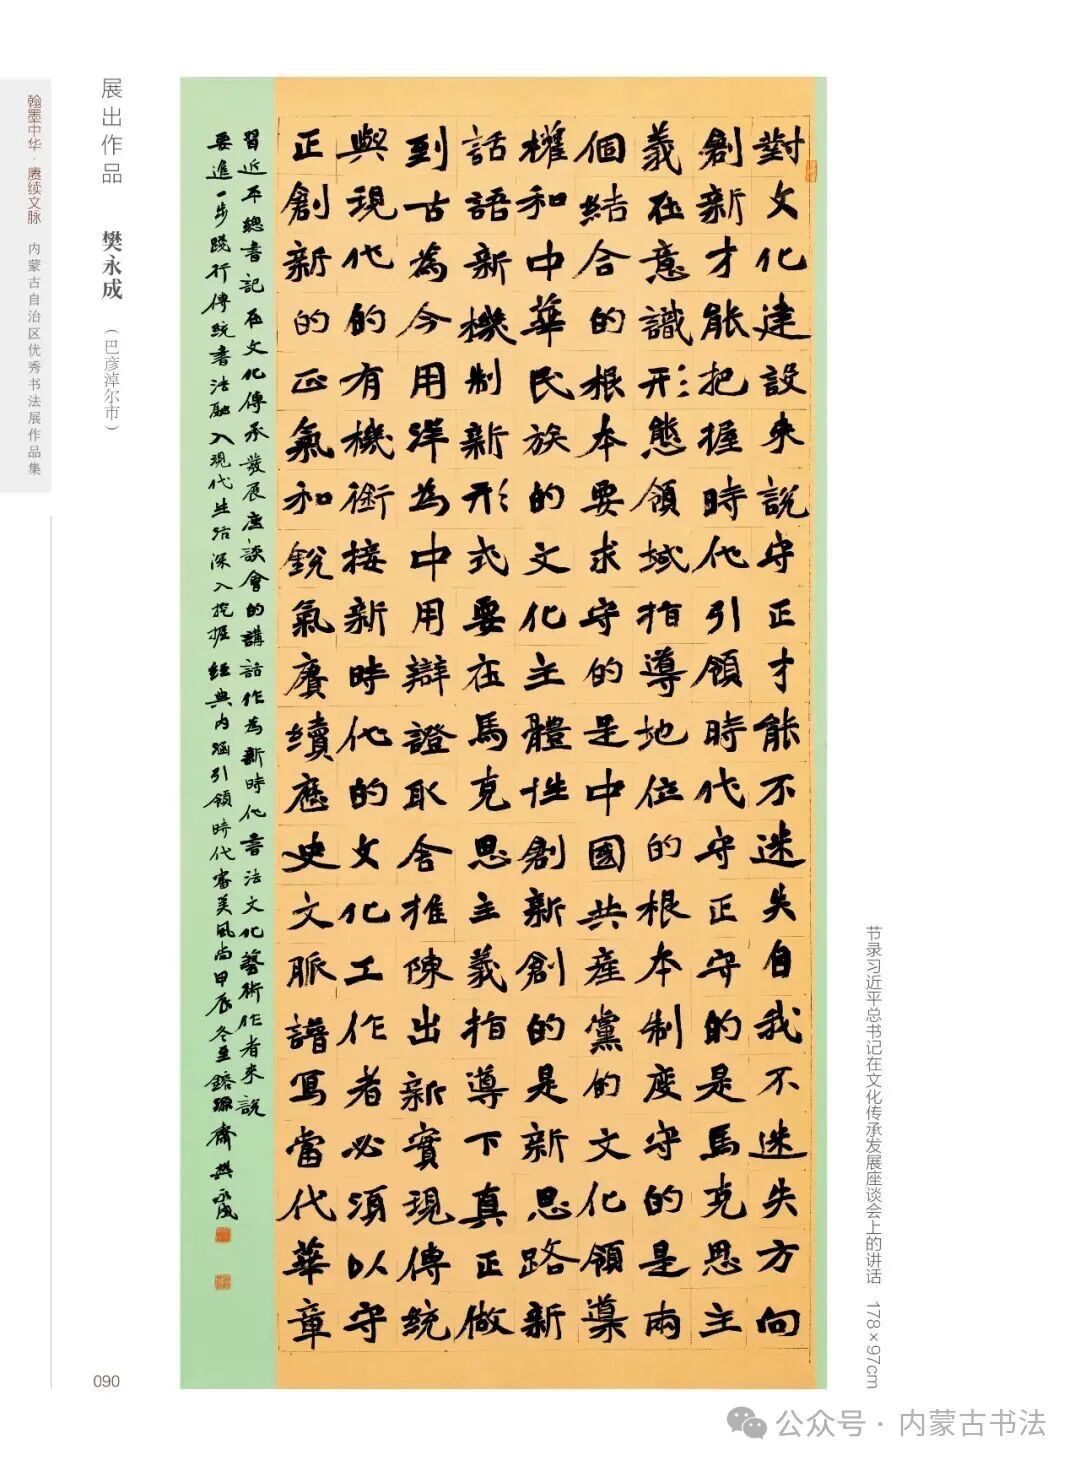 展出作品
樊永成
（巴彦淖尔市）
翰墨中华·赓续文脉 内蒙古自治区优秀书法展作品集
對文化建設來說守正才能不迷失自我不迷失方向
創新才能把握時代引領時代守正守的是馬克思主
義在意識形態領域指導地位的根本制度守的是兩
個結合的根本要求守的是中國共產黨的文化領導
權和中華民族的文化主體性創新創的是新思路新
話語新機制新形式要在馬克思主義指導下真正做
到古為今用洋為中用辯證取舍推陳出新實現傳統
與現代的有機銜接新時代的文化工作者必須以守
正創新的正氣和銳氣賡續歷史文脈譜寫當代華章
習近平總書記在文化傳承發展座談會的講話作為新時代書法文化藝術作者來說
要進一步踐行傳統書法融入現代生活深入挖掘經典內涵引領時代審美風尚甲辰冬至鎔源齋樊永成
节录习近平总书记在文化传承发展座谈会上的讲话 178×97cm
090
公众号·内蒙古书法